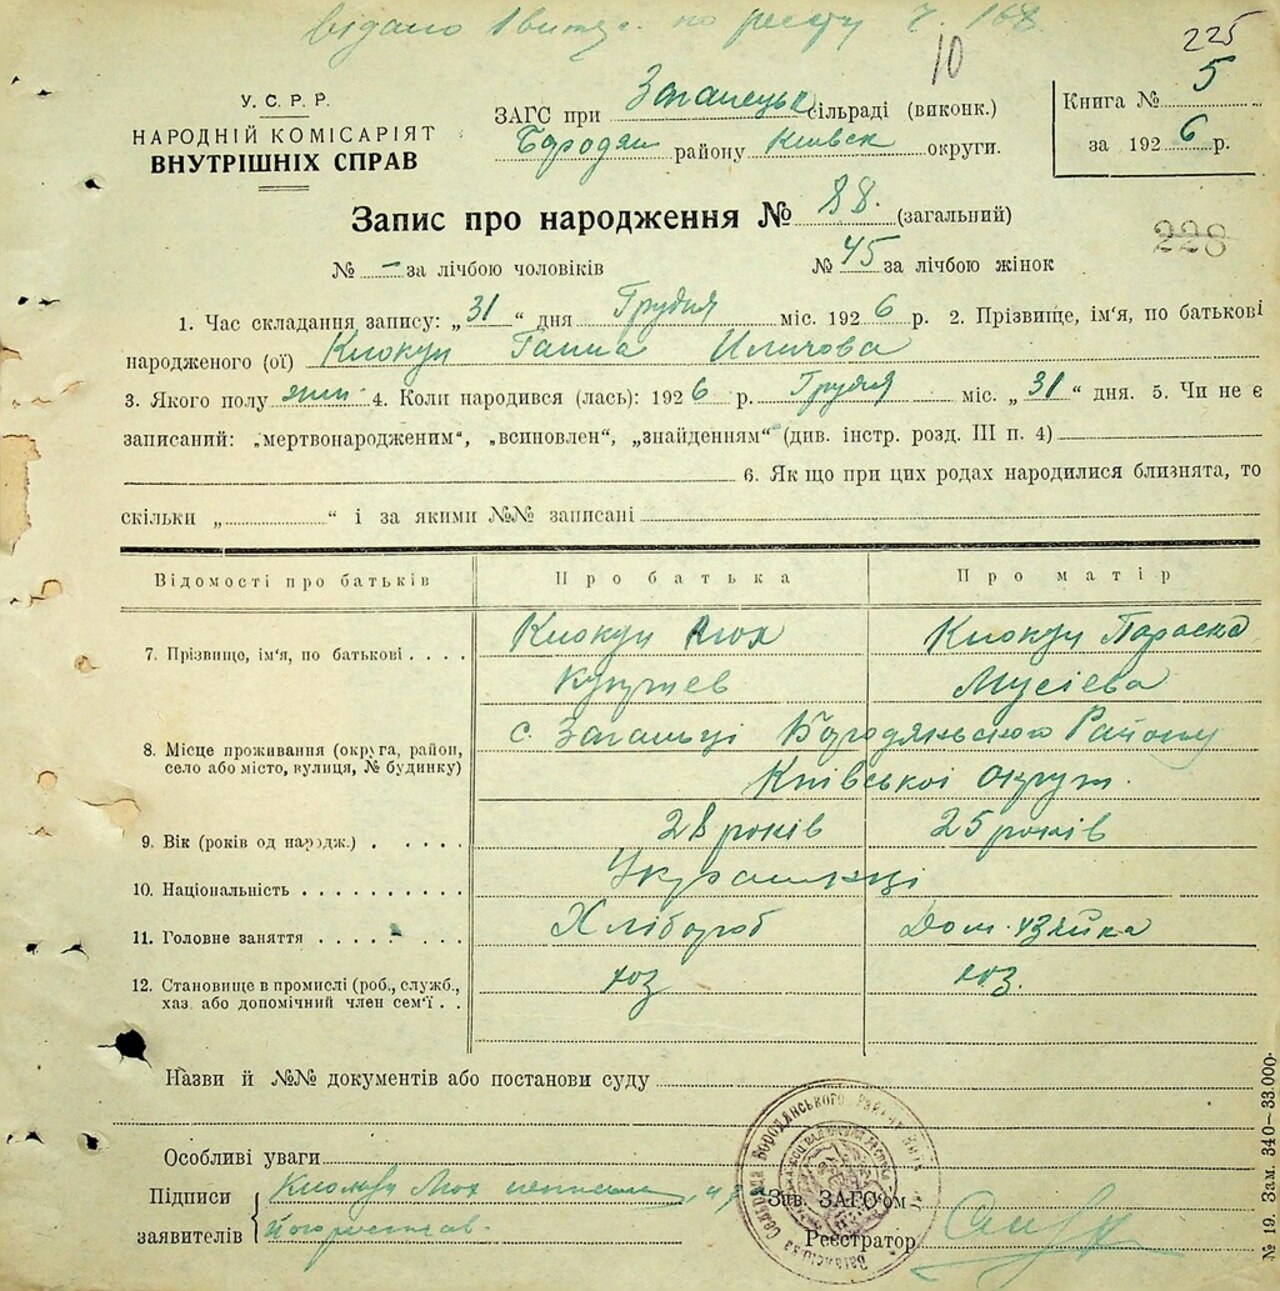 Видано 1 витяг. по реєстру Ч. 168.
225
10
У. С. Р. Р.
НАРОДНІЙ КОМІСАРІЯТ
ВНУТРІШНІХ СПРАВ
ЗАГС при Загалецьк сільраді (виконк.)
Бородян району Київськ округи.
Книга № 5
за 1926 р.
Запис про народження № 88. (загальний)
228
№ – за лічбою чоловіків № 45 за лічбою жінок
1. Час складання запису: „31“ дня Грудня міс. 1926 р. 2. Прізвище, ім'я, по батькові
народженого (ої) Клокун Ганна
3. Якого полу жін 4. Коли народився (лась): 1926 р. Грудня міс. „31“ дня. 5. Чи не є
записаний: „мертвонародженим“, „всиновлен“, „знайденням“ (див. інстр. розд. III п. 4)
6. Як що при цих родах народилися близнята, то
скільки „ “ і за якими №№ записані
Відомості про батьків Про батька Про матір
7. Прізвище, ім'я, по батькові . . . .
Клокун Клокун Параска
Мусієва
8. Місце проживання (округа, район,
село або місто, вулиця, № будинку)
с. Загальці Бородянського Району
Київської округи.
9. Вік (років од народж.) . . . . . 28 років 25 років
10. Національність . . . . . . . . . . Українці
11. Головне заняття . . . . . . . . Хлібороб Дом. хзяйка
12. Становище в промислі (роб., служб.,
хаз. або допомічний член сем'ї . .
хоз хоз.
Назви й №№ документів або постанови суду
Особливі уваги
Підписи
заявителів
Клокун
Зав. ЗАГС'ом
Реєстратор
№ 19. Зам. 340—33.000.